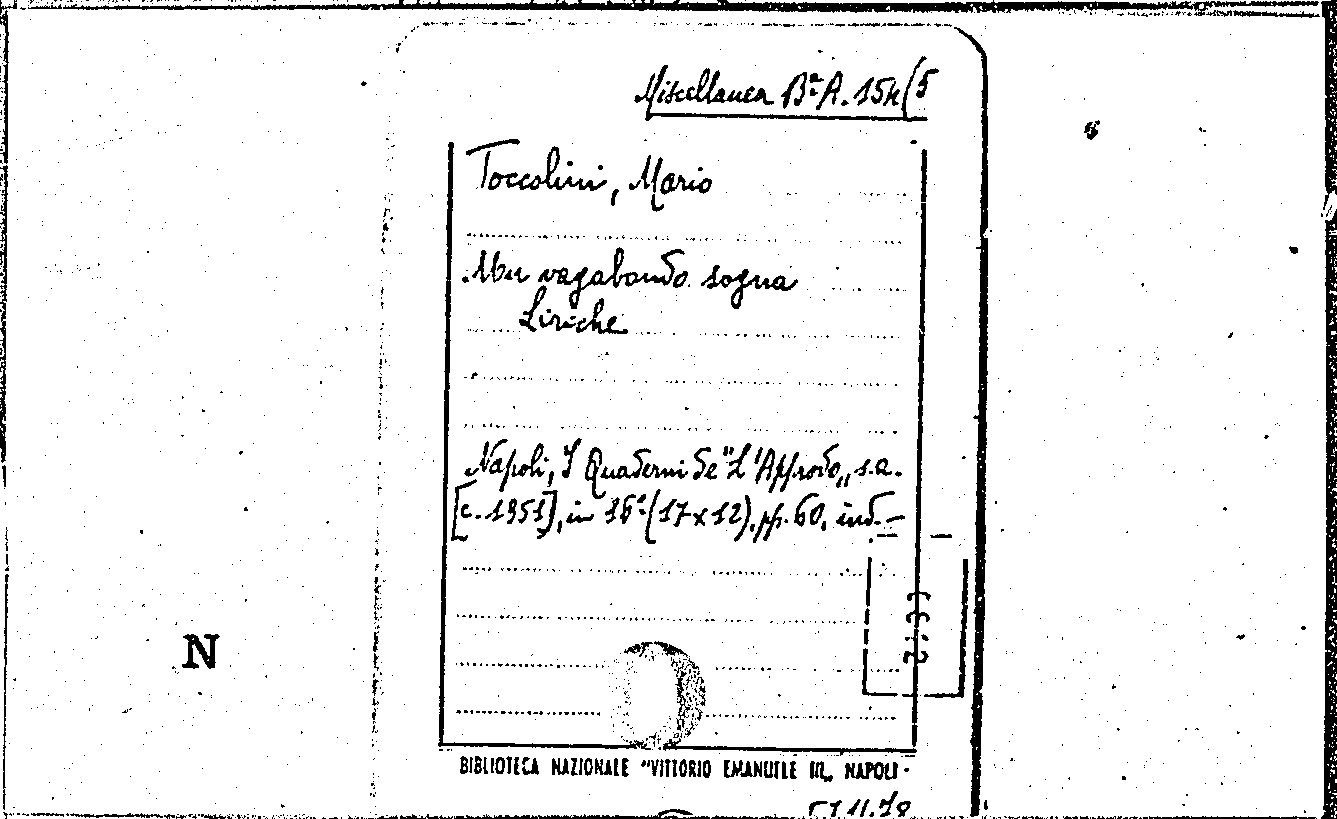 Miscellanea Bª A. 154(5
Toccolini, Mario
Un vagabondo sogna
Liriche
Napoli, I Quaderni de "L'Approdo„ s.a.
[c. 1951], in 16º (17x12), pp. 60, ind. —
N
BIBLIOTECA NAZIONALE "VITTORIO EMANUELE III„ NAPOLI